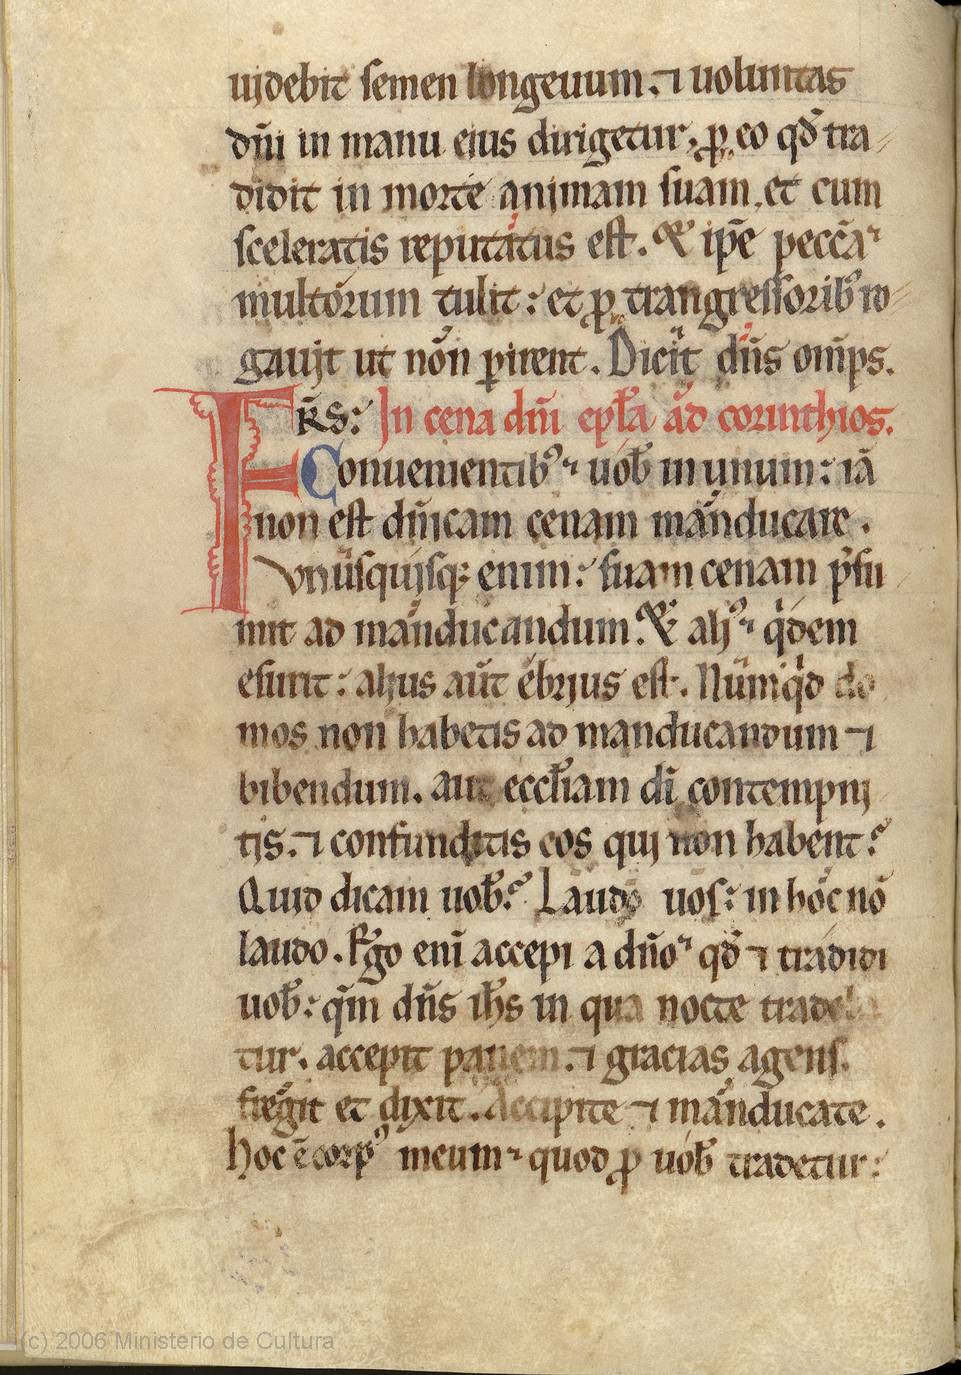 uidebit semen longeuum. ⁊ uoluntas
dn̄i in manu eius dirigetur, ꝓ eo qd̄ tra
didit in morte animam suam. et cum
sceleratis reputatus est. Et ip̄e pecc̄a
multorum tulit: et ꝓ trangressorib9 ro
gauit ut non ꝑirent. Dicit dn̄s om̄ps.
FRS: In cena dn̄i epl̄a ad corinthios.
Conuenientib9 uob̄ in unum: iā
non est dn̄icam cenam manducare.
Vnusquisqꝫ enim: suam cenam p̄su
mit ad manducandum. Et ali9 qⁱdem
esurit: alius aūt ebrius est. Numqⁱd do
mos non habetis ad manducandum ⁊
bibendum. aut eccl̄iam dī contempni
tis. ⁊ confunditis eos qui non habent?
Quid dicam uob̄? Laudo uos: in hoc nō
laudo. Ego enī accepi a dn̄o qd̄ ⁊ tradidi
uob̄: qm̄ dn̄s ih̄s in qua nocte tradeba
tur. accepit panem. ⁊ gracias agens.
fregit et dixit. Accipite ⁊ manducate.
hoc ē corp9 meum quod ꝓ uob̄ tradetur:
(c) 2006 Ministerio de Cultura